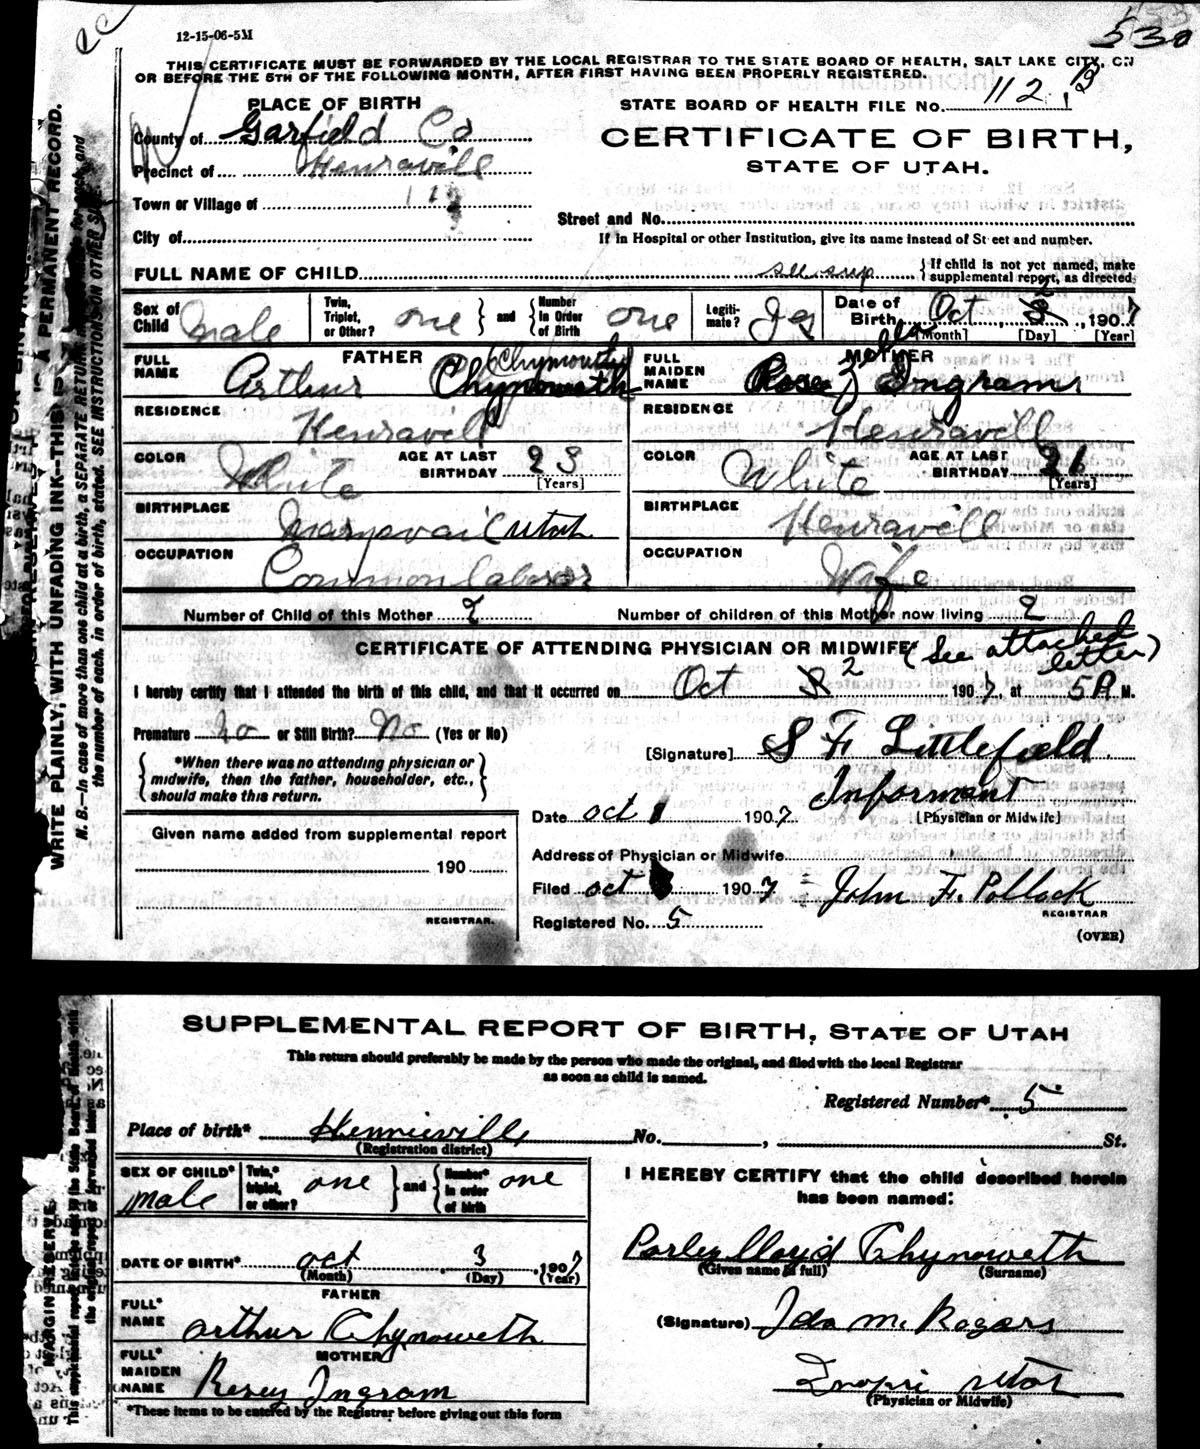 12-15-06-5M
530
THIS CERTIFICATE MUST BE FORWARDED BY THE LOCAL REGISTRAR TO THE STATE BOARD OF HEALTH, SALT LAKE CITY, ON
OR BEFORE THE 5TH OF THE FOLLOWING MONTH, AFTER FIRST HAVING BEEN PROPERLY REGISTERED.
PLACE OF BIRTH
STATE BOARD OF HEALTH FILE No. 112
County of Garfield Co
CERTIFICATE OF BIRTH,
STATE OF UTAH.
Precinct of Henravill
Town or Village of
Street and No.
City of
If in Hospital or other Institution, give its name instead of Street and number.
FULL NAME OF CHILD see sup { If child is not yet named, make
supplemental report, as directed
Sex of Child male
Twin, Triplet, or Other? one } and { Number in Order of Birth one
Legiti-mate? Yes
Date of Birth Oct 2, 1907
[Month] [Day] [Year]
FATHER
FULL NAME Arthur Chynoweth
RESIDENCE Henravill
COLOR White AGE AT LAST BIRTHDAY 23
[Years]
BIRTHPLACE Marysvail Utah
OCCUPATION Common labror
MOTHER
FULL MAIDEN NAME Rose Ingram
RESIDENCE Henravill
COLOR White AGE AT LAST BIRTHDAY 26
[Years]
BIRTHPLACE Henravill
OCCUPATION Wife
Number of Child of this Mother 2 Number of children of this Mother now living 2
CERTIFICATE OF ATTENDING PHYSICIAN OR MIDWIFE (See attached letter)
I hereby certify that I attended the birth of this child, and that it occurred on Oct 2 1907, at 5 P M.
Premature no or Still Birth? No (Yes or No)
*When there was no attending physician or
midwife, then the father, householder, etc.,
should make this return.
[Signature] S F Littlefield
Informent
[Physician or Midwife]
Date oct 1 1907
Given name added from supplemental report
190
REGISTRAR.
Address of Physician or Midwife
Filed oct 1907 John F. Pollock
REGISTRAR
Registered No. 5
(OVER)
WRITE PLAINLY, WITH UNFADING INK—THIS IS A PERMANENT RECORD.
N. B.—In case of more than one child at a birth, a SEPARATE RETURN must be made for each, and
the number of each, in order of birth, stated. SEE INSTRUCTIONS ON OTHER SIDE.
SUPPLEMENTAL REPORT OF BIRTH, STATE OF UTAH
This return should preferably be made by the person who made the original, and filed with the local Registrar
as soon as child is named.
Registered Number* 5
Place of birth* Hennieville No. , St.
(Registration district)
SEX OF CHILD* male
Twin,* triplet, or other? one } and { Number* in order of birth one
DATE OF BIRTH* oct 3, 1907
(Month) (Day) (Year)
FATHER
FULL* NAME arthur Chynoweth
MOTHER
FULL* MAIDEN NAME Rosey Ingram
*These items to be entered by the Registrar before giving out this form
I HEREBY CERTIFY that the child described herein
has been named:
Parley Lloyd Chynoweth
(Given name in full) (Surname)
(Signature) Ida M. Rogars
(Physician or Midwife)
MARGIN RESERVE